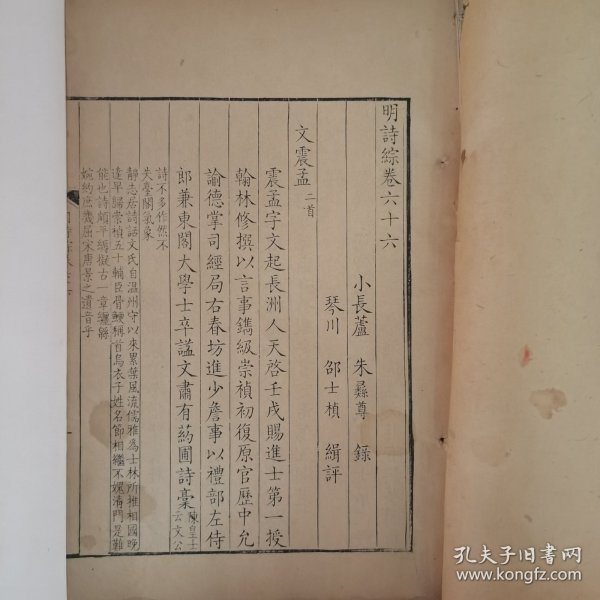 明詩綜卷六十六
小長蘆 朱彝尊 錄
琴川 邵士楨 緝評
文震孟二首
震孟字文起長洲人天啓壬戌賜進士第一授
翰林修撰以言事鐫級崇禎初復原官歷中允
諭德掌司經局右春坊進少詹事以禮部左侍
郎兼東閣大學士卒謚文肅有葯圃詩稾陳皇士
云文公
詩不多作然不
失臺閣氣象
靜志居詩話文氏自溫州守以來累葉風流儒雅爲士林所推相國晚
達早歸崇禎五十輔臣骨鯁稱首烏衣子姓名節相繼不媿清門是難
能也詩頗平衍擬古一章纏緜
婉約庶幾屈宋唐景之遺音乎
孔夫子旧书网
www.kongfz.com